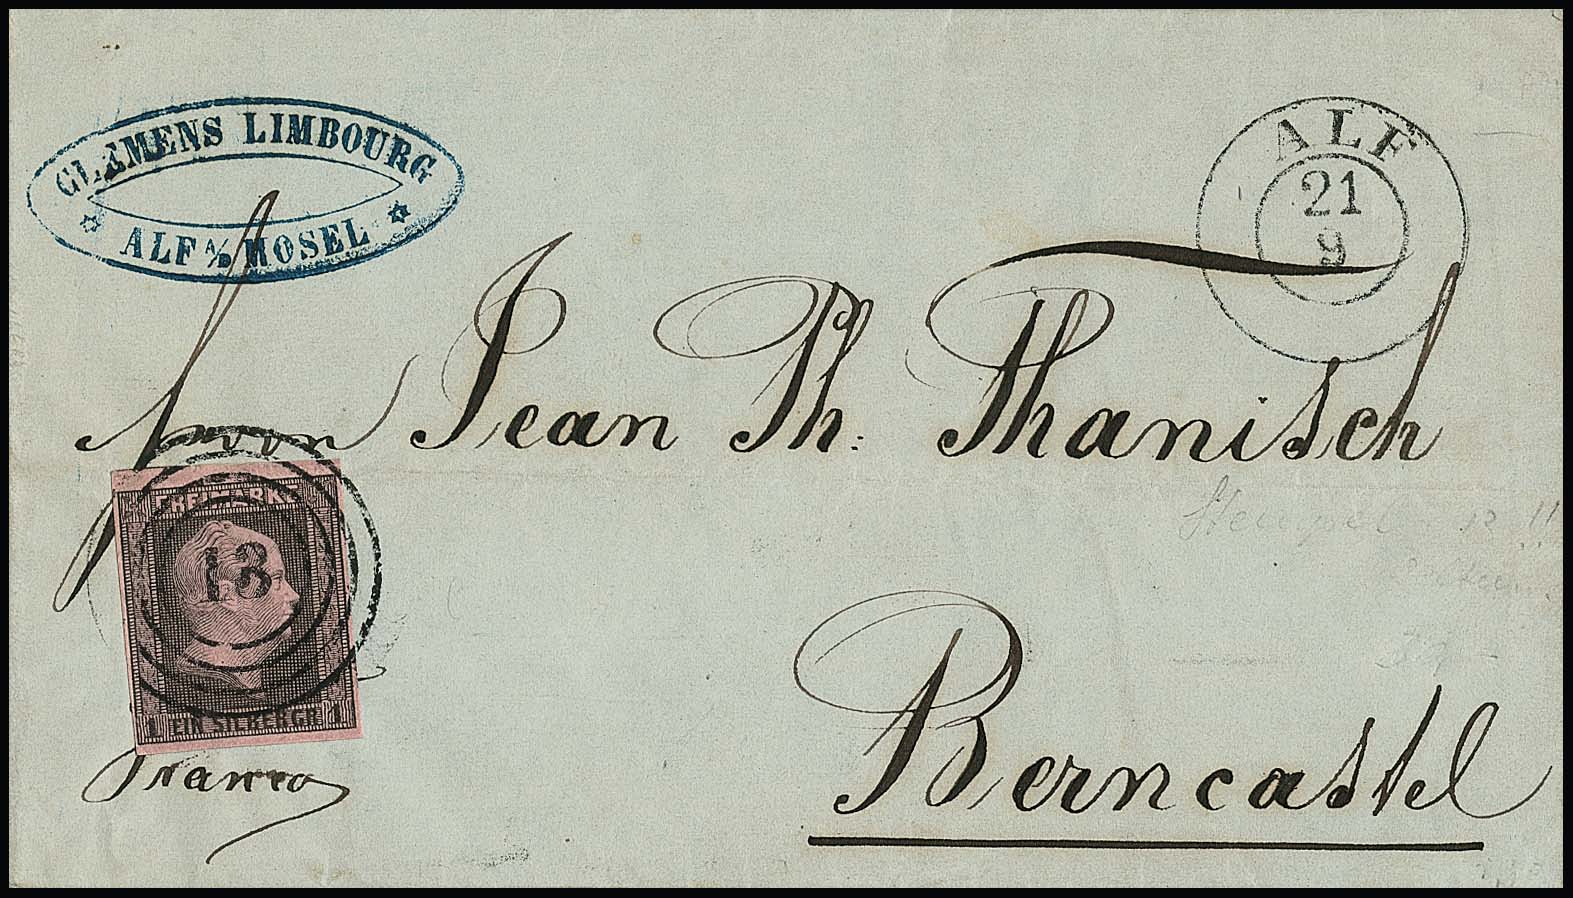 CLEMENS LIMBOURG
ALF A/D MOSEL
ALF
21
9
Herrn Jean Ph: Thanisch
FREIMARKE
13
1 EIN SILBERGR 1
Stempel 13 !!
Berncastel
Franco